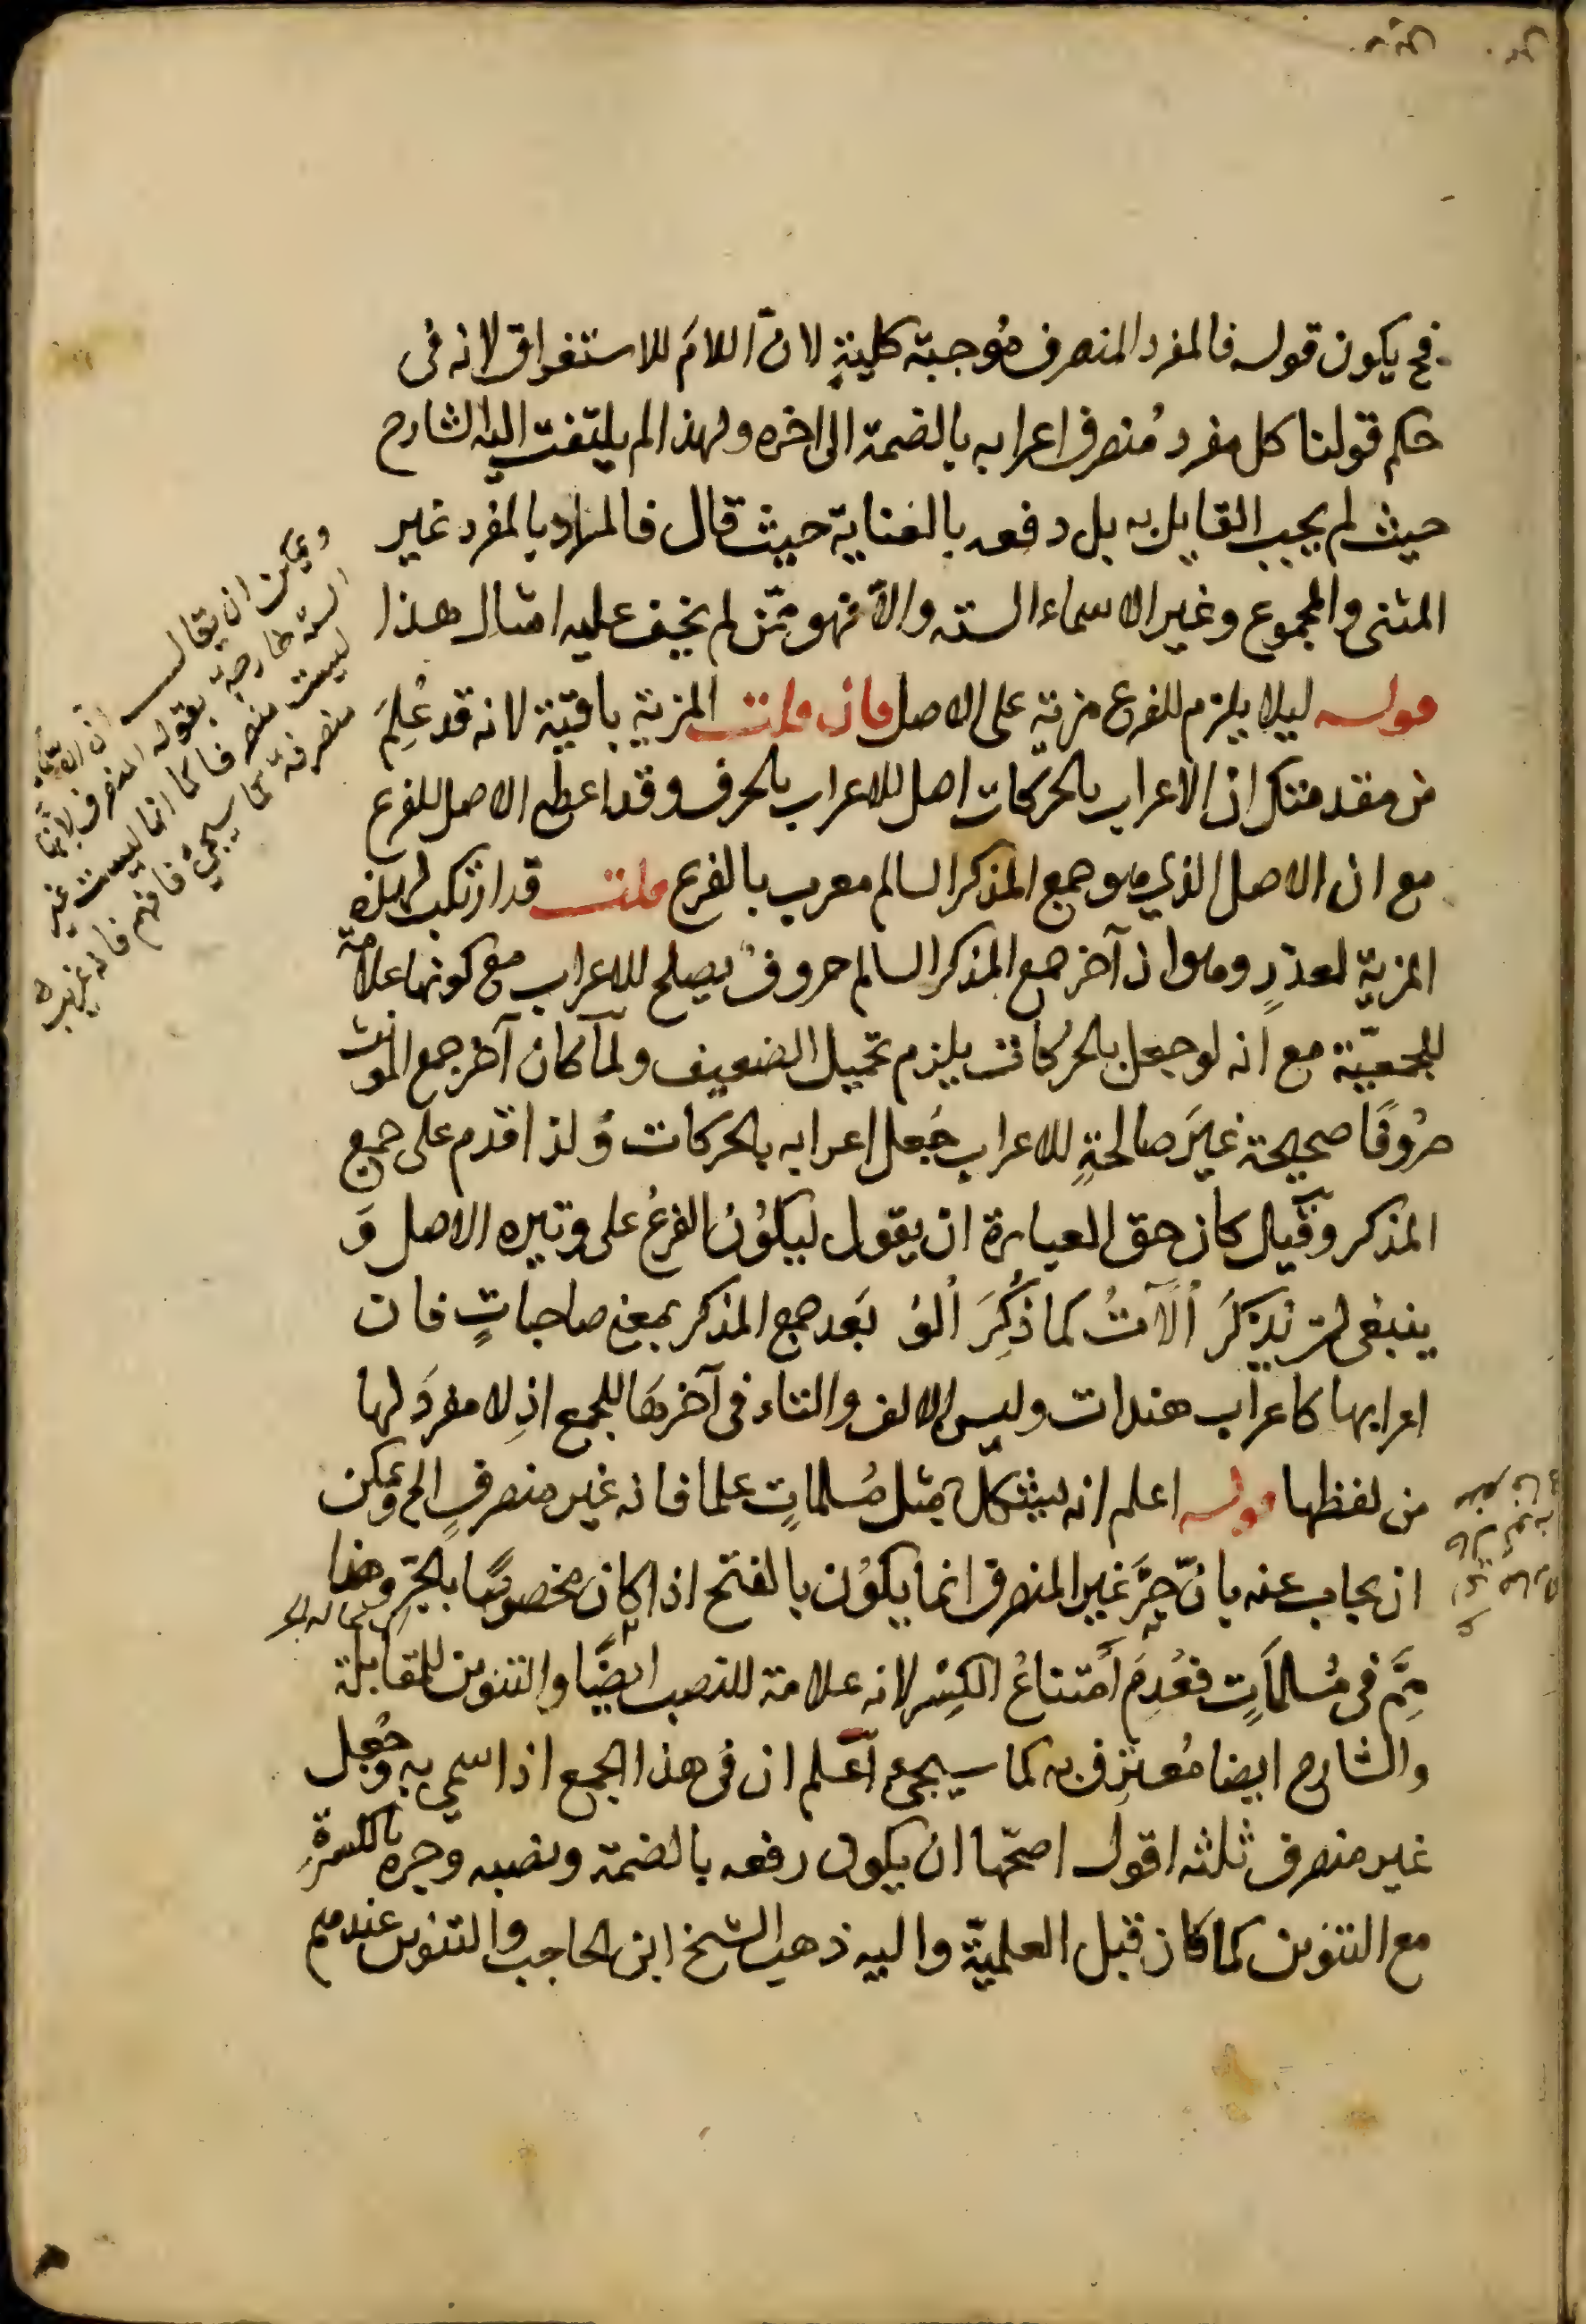 فح يكون قوله فالمفرد المنصرف مُوجبة كلية لانّ اللامَ للاستغراق لانه فى
حكم قولنا كل مفرد مُنصرف اعرابه بالضمة الى اخره ولهذا لم يلتفت اليه الشارح
حيث لم يجب القايل به بل دفعه بالعناية حيث قال فالمراد بالمفرد غير
المثنى والمجموع وغير الاسماء الستة والّا فهو ممّن لم يخف عليه امثال هذا
قوله ليلا يلزم للفرع مزية على الاصل فان قلت المزية باقية لانه قد عُلِمَ
من مقدمتك ان الاعراب بالحركات اصل للاعراب بالحرف وقد اعطى الاصل للفرع
مع ان الاصل الذي هو جمع المذكر السالم معرب بالفرع قلت قد ارتكب هذه
المزية لعذرٍ وهو ان آخر جمع المذكر السالم حروفٌ يصلح للاعراب مع كونها علامة
للجمعيّة مع انه لو جعل بالحركات يلزم تحميل الضعيف ولمّا كان آخر جمع المونث
حرُوفًا صحيحة غيرَ صالحةٍ للاعراب جُعل اعرابه بالحركات وَلذا قدم على جمع
المذكر وقيل كان حق العبارة ان يقول ليكوُن الفرعُ على وتيره الاصل وَ
ينبغى ان يذكرَ اُلَاتُ كما ذُكِرَ اُلوُ بَعد جمع المذكر بمعنى صاحباتٍ فان
اعرابها كاعراب هندات وليس الالف والتاء فى آخرهَا للجمع اذِ لا مفردَ لها
من لفظها قوله اعلم انه يشكل بمثل مُسلماتٍ علما فانه غير منصرفٍ الخ ويمكن
ان يجاب عنه بانّ جرَّ غير المنصرف انما يكوُن بالفتح اذا كان مخصوصًا بالجرّ وهنا
ثمَّ فى مُسلماتٍ فعُدِمَ اُمتناعُ الكسِر لانه علامة للنصب ايضًا والتنوين للمقابلة
والشارح ايضا مُعترِف به كما سيجئ اعلم ان فى هذا الجمع اذا سمي به وجُعل
غير منصرف ثلثه اقول اصحّها ان يكون رفعه بالضمة ونصبه وجره بالكسرةِ
مع التنوين كما كان قبل العلميّة واليه ذهب الشيخ ابن الحاجب والتنوين عندهم
ويمكن ان يقال ان الاسماء
الستة خارجة بقوله المنصرف لانها
ليست منصرفا كما انها ليست غير
منصرفة كما سيجئ فافهم فانه